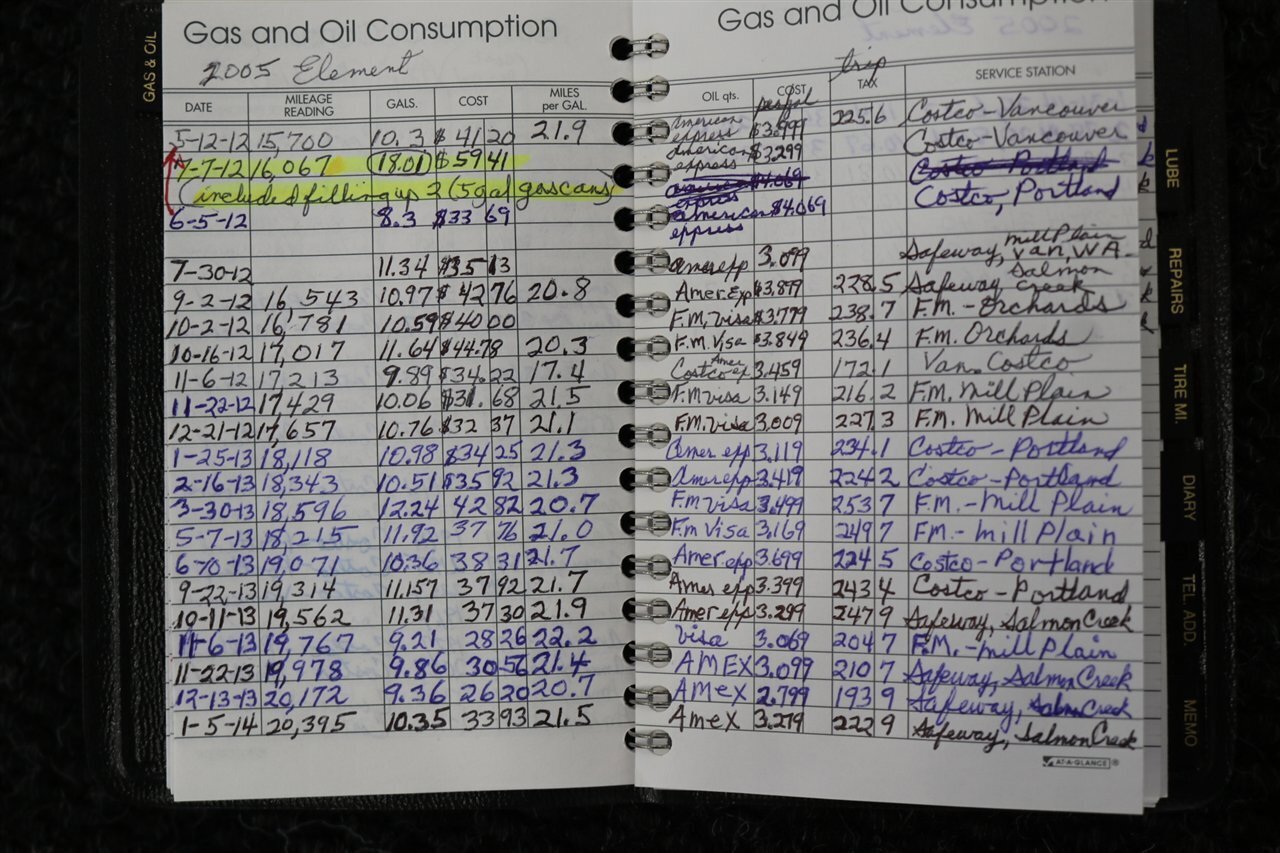 GAS & OIL
Gas and Oil Consumption
2005 Element
DATE MILEAGE READING GALS. COST MILES per GAL.
5-12-12 15,700 10.3 $41 20 21.9
7-7-12 16,067 18.01 $59 41
(included filling up 2 (5gal gascans)
6-5-12 8.3 $33 69
7-30-12 11.34 $35 13
9-2-12 16,543 10.97 $42 76 20.8
10-2-12 16,781 10.59 $40 00
10-16-12 17,017 11.64 $44.78 20.3
11-6-12 17,213 9.89 $34.22 17.4
11-22-12 17,429 10.06 $31.68 21.5
12-21-12 17,657 10.76 $32 37 21.1
1-25-13 18,118 10.98 $34 25 21.3
2-16-13 18,343 10.51 $35 92 21.3
3-30-13 18,596 12.24 42 82 20.7
5-7-13 18,215 11.92 37 76 21.0
19,071 10.36 38 31 21.7
9-22-13 19,314 11.157 37 92 21.7
10-11-13 19,562 11.31 37 30 21.9
11-6-13 19,767 9.21 28 26 22.2
11-22-13 19,978 9.86 30 56 21.4
12-13-13 20,172 9.36 26 20 20.7
1-5-14 20,395 10.35 33 93 21.5
Gas and Oil Consumption
trip
OIL qts. COST per gal TAX SERVICE STATION
American express $3.999 225.6 Costco-Vancouver
American express $3.299 Costco-Vancouver
$4.069 Costco Portland
American express $4.069 Costco, Portland
Amerexp 3.099 Safeway, Mill Plain Van, WA.
Amer.Exp $3.899 228.5 Safeway Salmon Creek
F.M. Visa $3.779 238.7 F.M. - Orchards
F.M. Visa $3.849 236.4 F.M. Orchards
Costco Amer ex 3.459 172.1 Van. Costco
F.M visa 3.149 216.2 F.M. Mill Plain
F.M. visa 3.009 227.3 F.M. Mill Plain
Amer exp 3.119 234.1 Costco - Portland
Amerexp 3.419 224 2 Costco - Portland
F.M visa 3.499 253 7 F.M. - Mill Plain
F.m Visa 3.169 249 7 FM. - Mill Plain
Amer exp 3.699 224 5 Costco - Portland
Amer exp 3.399 243 4 Costco - Portland
Amer exp 3.299 247 9 Safeway, Salmon Creek
Visa 3.069 204 7 F.M. - Mill Plain
AMEX 3.099 210 7 Safeway, Salmon Creek
AMex 2.799 193 9 Safeway, Salmon Creek
Amex 3.279 222 9 Safeway, Salmon Creek
AT-A-GLANCE®
LUBE
REPAIRS
TIRE MI.
DIARY
TEL. ADD.
MEMO